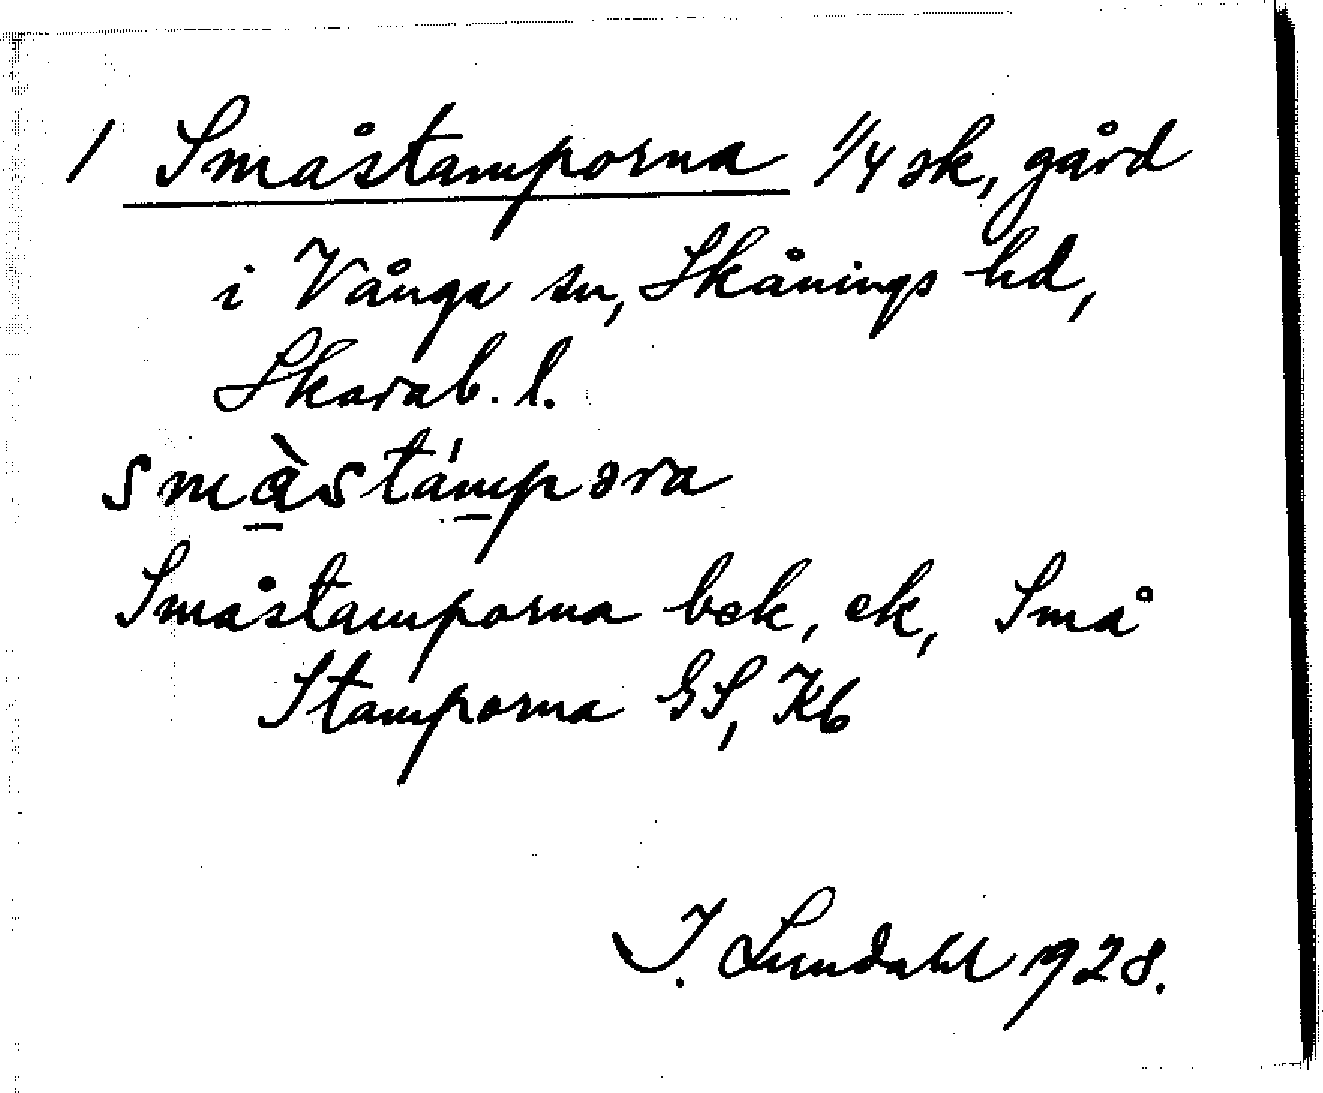 1 Småstamporna 1/4 sk, gård
i Vånga sn, Skånings hd,
Skarab. l.
småstámpora
Småstamporna bek, ek, Små
Stamporna GS, Kb
I. Lundahl 1928.